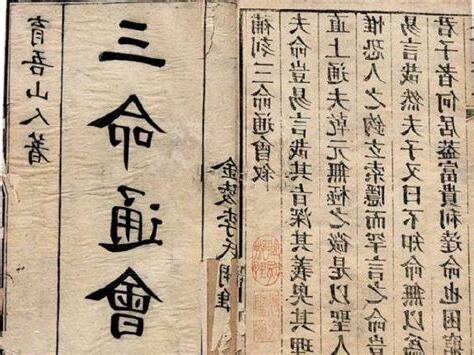 育吾山人著
三命通會
金陵李氏
補刻三命通會敘
夫命豈易言哉其旨深其義奧其
直上通夫乾元無極之微是以聖人
惟恐人之鉤玄索隱而罕言之命豈
易言哉然夫子又曰不知命無以為
君子者何居蓋富貴利達命也困窮